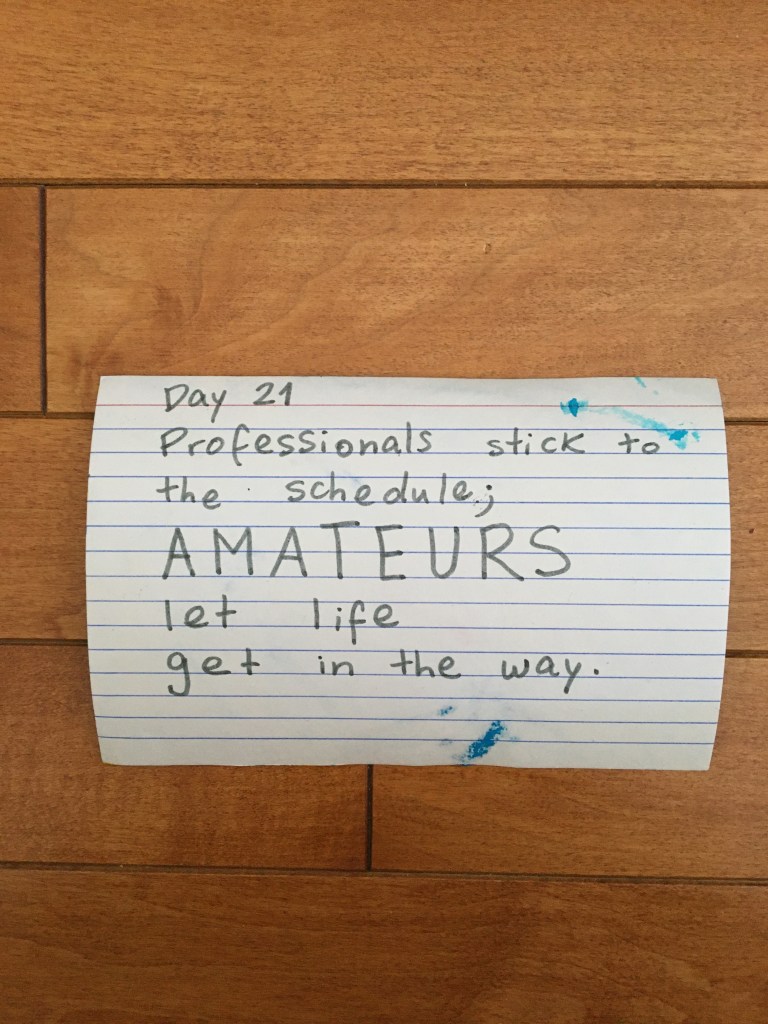 Day 21
Professionals stick to
the schedule;
AMATEURS
let life
get in the way.